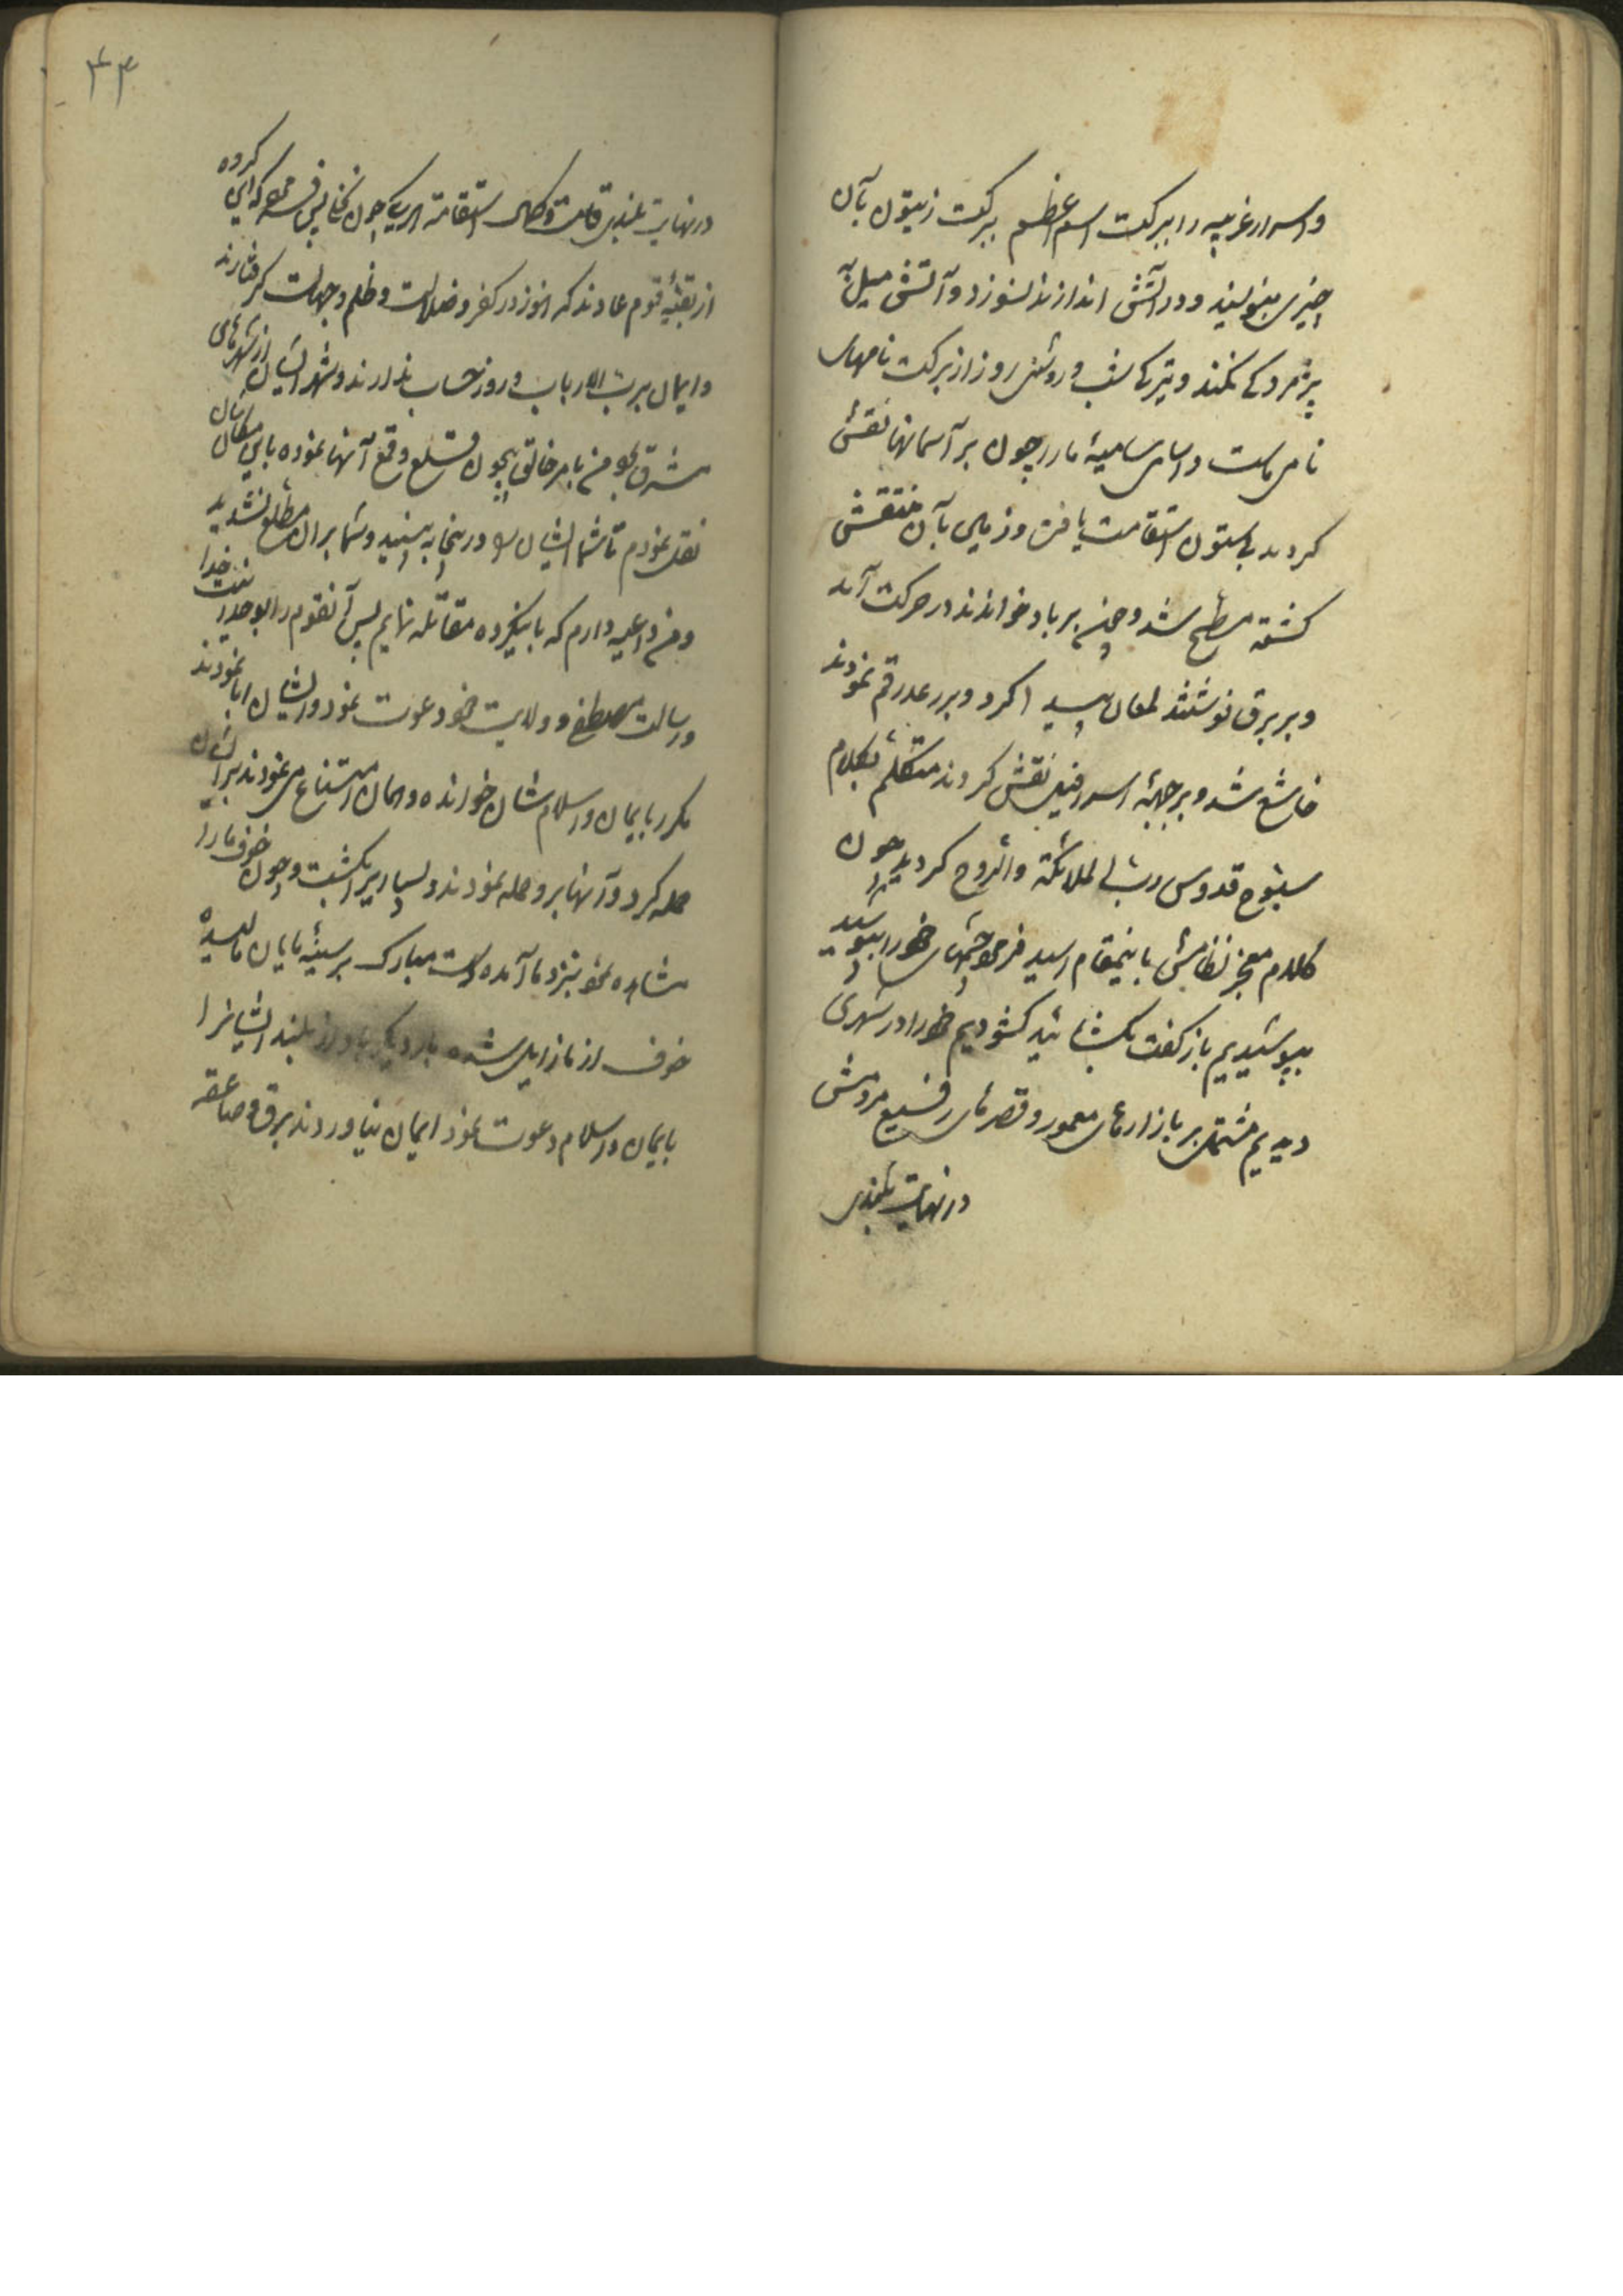 و اسرار غریبه را ببرکت اسم اعظم ببرکت زیتون بآن
چیزی بنویسند و در آتش اندازند نسوزد و آتش میل به
پژمردگی نکند و تیرگی شب و روشنی روز از برکت نامهای
نامی ماست و اسامی سامیهٔ ما را چون بر آسمانها نقش
کردند بی ستون استقامت یافت و زمین بآن منتقش
کشته مسطح شد و چون بر باد خواندند در حرکت آمد
و بر برق نوشتند لمعان پیدا کرد و بر رعد رقم نمودند
خاشع شد و بر جبههٔ اسرافیل نقش کردند متکلم بکلام
سبوح قدوس رب الملائکة والروح کردید چون
کلام معجز نظامش باینمقام رسید فرمود چشمهای خود را بپوشید
بپوشیدیم باز گفت بگشائید گشودیم خود را در شهری
دیدیم مشتمل بر بازارهای معمور و قصرهای رفیع مردمش
در نهایت بلندی
۳۴
در نهایت بلندی قامت و کمال استقامت هر یک چون نخلی پس فرمود که این گروه
از بقیهٔ قوم عادند که هنوز در کفر و ضلالت و ظلم و جهالت گرفتارند
و ایمان برب الارباب و روز حساب ندارند و شهر ایشان از شهرهای
مشرق بود من بامر خالق بیچون قلع و قمع آنها نموده باین مکان
نقل نمودم تا شما ایشان را در اینجا به بینید و شما بر آن مطلع نشدید
و من داعیه دارم که با اینگروه مقاتله نمایم پس آنقوم را بوحدانیت خدا
و رسالت مصطفی و ولایت خود دعوت نمود و ایشان ابا نمودند
مکرر بایمان و اسلام شان خوانده و همان امتناع می نمودند بر ایشان
حمله کرد و آنها برو حمله نمودند و بسیاری را بکشت و چون خوف ما را
مشاهده نمود بنزد ما آمده دست مبارک بر سینهٔ مایان مالیده
خوف از ما زایل شده بار دیگر باواز بلند ایشانرا
بایمان و اسلام دعوت نمود ایمان نیاوردند برق و صاعقه